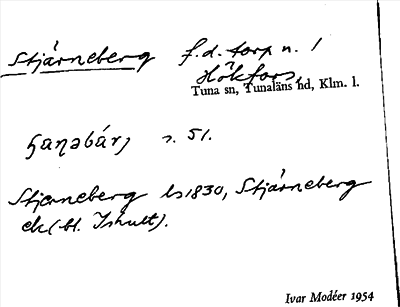 Stjärneberg f.d. torp n. 1
Hökfors,
Tuna sn, Tunaläns hd, Klm. l.
s. 51.
Stjerneberg ls 1830, Stjärneberg
ek (bl. Ishult).
Ivar Modéer 1954